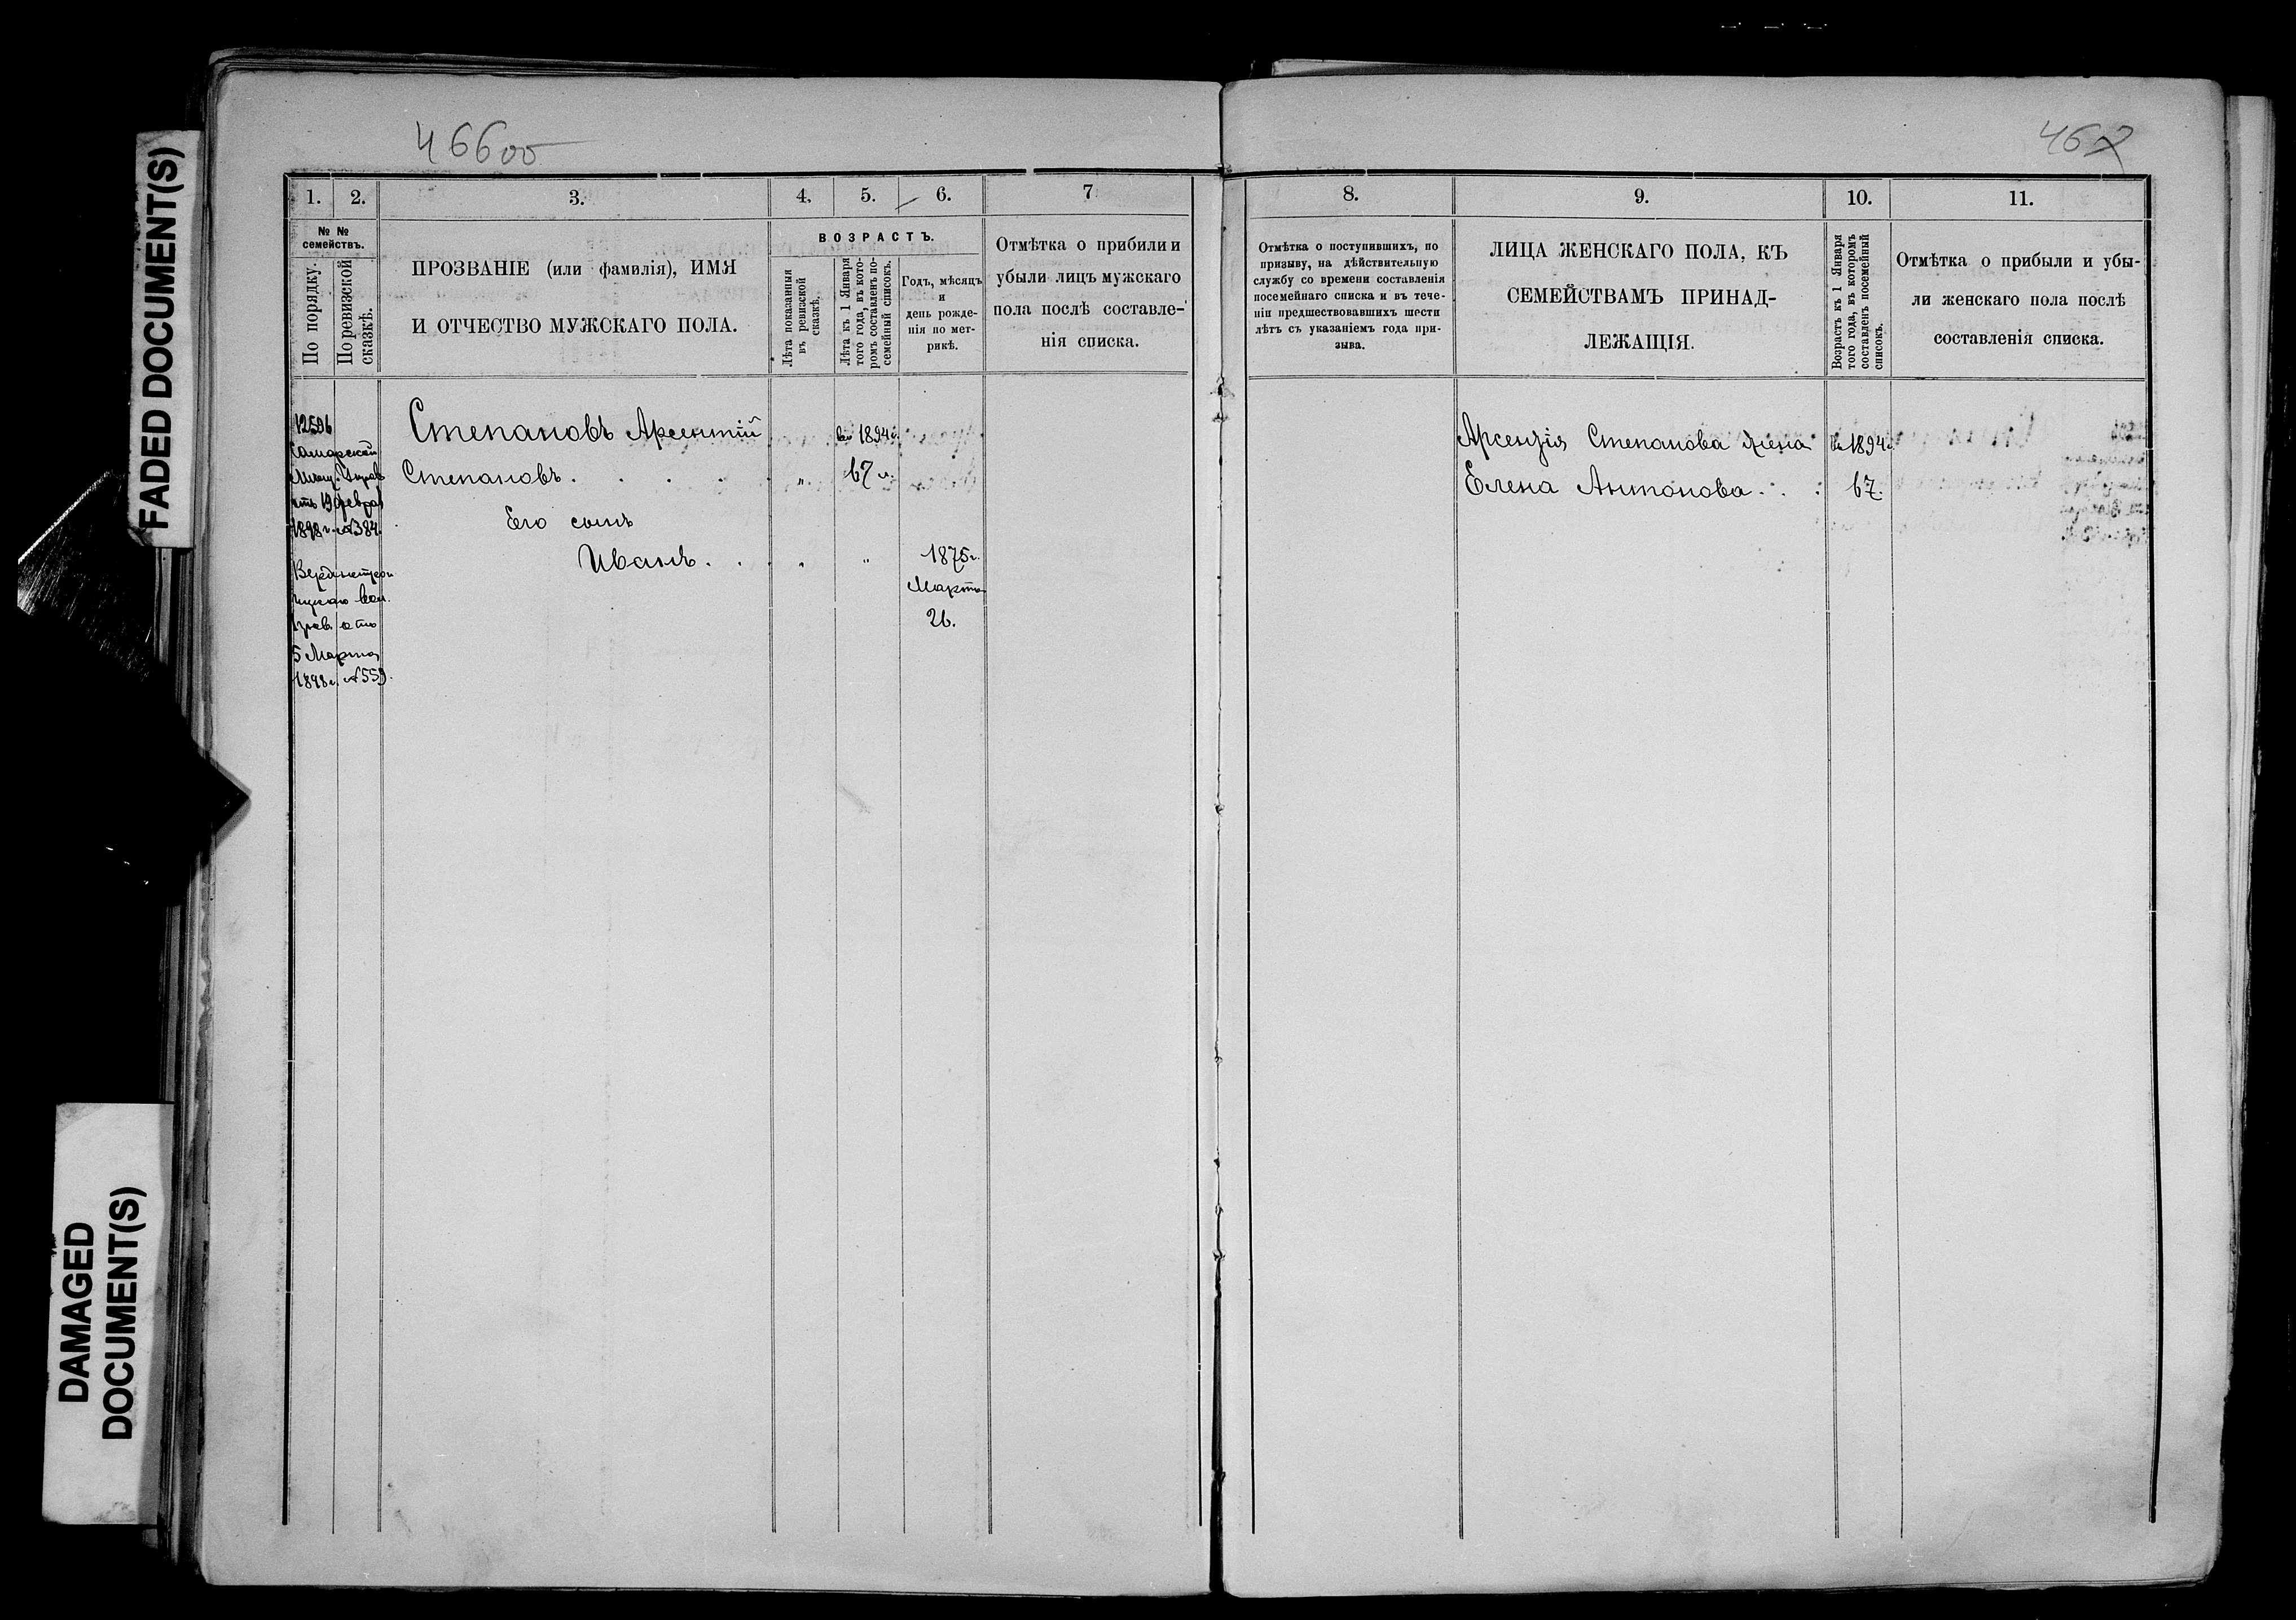 FADED DOCUMENT(S)
DAMAGED
DOCUMENT(S)
466 об
467
1.
2.
3.
4.
5.
6.
7.
№ №
семействъ.
По порядку.
По ревизской
сказкѣ.
ПРОЗВАНІЕ (или фамилія), ИМЯ
И ОТЧЕСТВО МУЖСКАГО ПОЛА.
ВОЗРАСТЪ.
Лѣта показанныя
въ ревизской
сказкѣ.
Лѣта къ 1 Января
того года, въ кото-
ромъ составленъ по-
семейный списокъ.
Годъ, мѣсяцъ
и
день рожде-
нія по мет-
рикѣ.
Отмѣтка о прибыли и
убыли лицъ мужскаго
пола послѣ составле-
нія списка.
12596
Самарской
Мѣщ. Управ
отъ 19 февра
1898 г. №384.
вол.
прав. отъ
5 Марта
1898 г. №559.
Степановъ Арсентій
Степановъ . . . .
въ 1894 г.
67 л.
Его сынъ
Иванъ . .
1875 г.
Марта
26.
8.
9.
10.
11.
Отмѣтка о поступившихъ, по
призыву, на дѣйствительную
службу со времени составленія
посемейнаго списка и въ тече-
ніи предшествовавшихъ шести
лѣтъ съ указаніемъ года при-
зыва.
ЛИЦА ЖЕНСКАГО ПОЛА, КЪ
СЕМЕЙСТВАМЪ ПРИНАД-
ЛЕЖАЩІЯ.
Возрастъ къ 1 Января
того года, въ которомъ
составленъ посемейный
списокъ.
Отмѣтка о прибыли и убы-
ли женскаго пола послѣ
составленія списка.
Арсентія Степанова жена
въ 1894 г.
Елена Антонова . .
67.